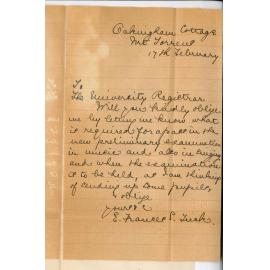 Oakingham Cottage
Mt Torrens
17th February
To
The University Registrar
Will you kindly oblige
me by letting me know what
is required for a pass in the
new preliminary examination
in music and also in singing
and when the examination
is to be held, as I am thinking
of sending up some pupils,
oblige
yours &c
E. Frances S.